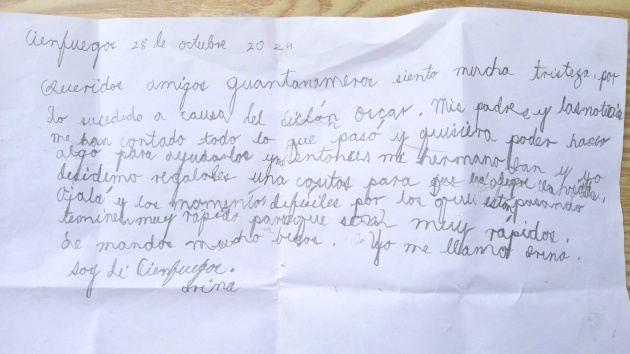 Cienfuegos 28 de octubre 2024
Queridos amigos guantanameros siento mucha tristeza por
lo sucedido a causa del ciclón Oscar. Mis padres y las noticias
me han contado todo lo que pasó y quisiera poder hacer
algo para ayudarlos y entonces mi hermano Ian y yo
decidimo regalarles una cositas para que
Ojalá y los momentos defíciles por los que están pasando
terminen muy rápido para que sean muy rápidos.
Se mandos mucho besos. Yo me llamo Irina.
soy de Cienfuegos.
Irina